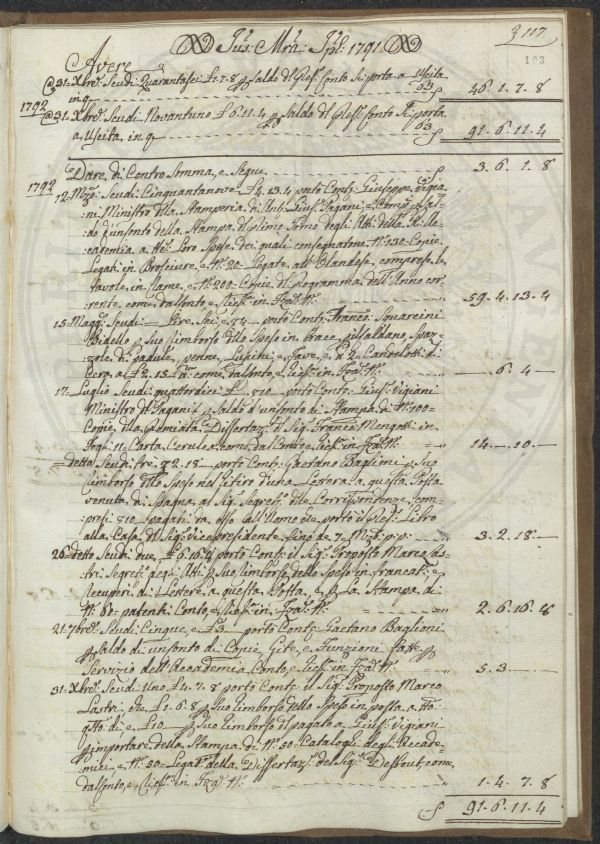 Jus: Mra: Jpl: 1791
3 117
103
Avere
@ 31. Xbre: Scudi Quarantasei £ 1.7.8 p Saldo del Pres: Conto Si porta a Uscita
in q 63 f 46. 1. 7. 8
1792 @ 31. Xbre: Scudi Novantuno £ 6.11.4 p Saldo del Pres: Conto Si porta
a Uscita in q 63 f 91. 6. 11. 4
Dare, di Contro Somma, e Segue f 3. 6. 1. 8
1792
12. Mzo: Scudi Cinquantanove £ 4.13.4 porto Conti: Giuseppe Vigia=
ni Ministro della Stamperia di Ant: Gius: Pagani e Comp: p Sal=
do d'un Conto della Stampa del primo Tomo degli Atti della R: Ac=
cademia a Loro Spese dei quali consegnatone N: 130 Copie
Legati in Brosciure, e N: 20 Legate all'Olandese, comprese le
tavole in Rame, e N: 200 Copie del programma dell'Anno cor=
rente come dal Conto, e Ricev: in Fza: N: 59. 4. 13. 4
15. Magg: Scudi — Lire Sei, e 4 — porto Conti: Franco: Squarcini
Bidello p Suo rimborso delle Spese in brace, Spaz=
zole di padule, penne, Lapis, e Fave, e a 2 Candelotti di
Cera a £ 2.15 come dal Conto, e Ricev: in Fza: N: — 6. 4 —
17. Luglio Scudi quattordici £ — 10 — porto Conti: Gius: Vigiani
Ministro di Pagani p Saldo d'un Conto di Stampa di N: 100=
Copie della premiata Dissertaz: del Sig: Franco: Mengotti in
Fogli 11. Carta Cerulea come dal Conto e Ricev: in Fza: N: 14. — 10. —
detto Scudi tre, £ 2.18 — porto Conti: Gaetano Baglioni p Suo
rimborso delle Spese nel ritiro d'una Lettera a questa Posta
venuta di Spagna al Sig: Segret: delle Corrispondenze, com=
presi pagati da esso all'Uomo che porto il Pres: Libro
alla Casa del Sig: Vice presidente fino de 7. Mzo: p: p: 3. 2. 18. —
26. detto Scudi due, £ 6.16.8 porto Conti: il Sig: Proposto Marco Las=
tri Segret: degli Atti p Suo rimborso delle Spese in francat: e
Recuperi di Lettere a questa Posta, e p La Stampa di
N: 80 patenti Conto, e Ricev: in Fza: N: 2. 6. 16. 8
21. 7bre: Scudi Cinque, e £ 3 — porto Conti: Gaetano Baglioni
p Saldo di un Conto di Copie, Gite, e Funzioni fatte p
Servizio dell'Accademia Conto, e Ricev: in Fza: N: 5. 3 —
31. Xbre: Scudi Uno £ 4.7.8 porto Conti: il Sig: Proposto Marco
Lastri, che £ 1.6.8 p Suo rimborso delle Spese in posta a tto:
q: di, e £ 10 — p Suo rimborso di pagato a Gius: Vigiani
p importare della Stampa di N: 50 Cataloghi degli Accade=
mici, e N: 50 Legat: della Dissertaz: del Sig: come
dal Conto, e Ricev: in Fza: N: 1. 4. 7. 8
f 91. 6. 11. 4